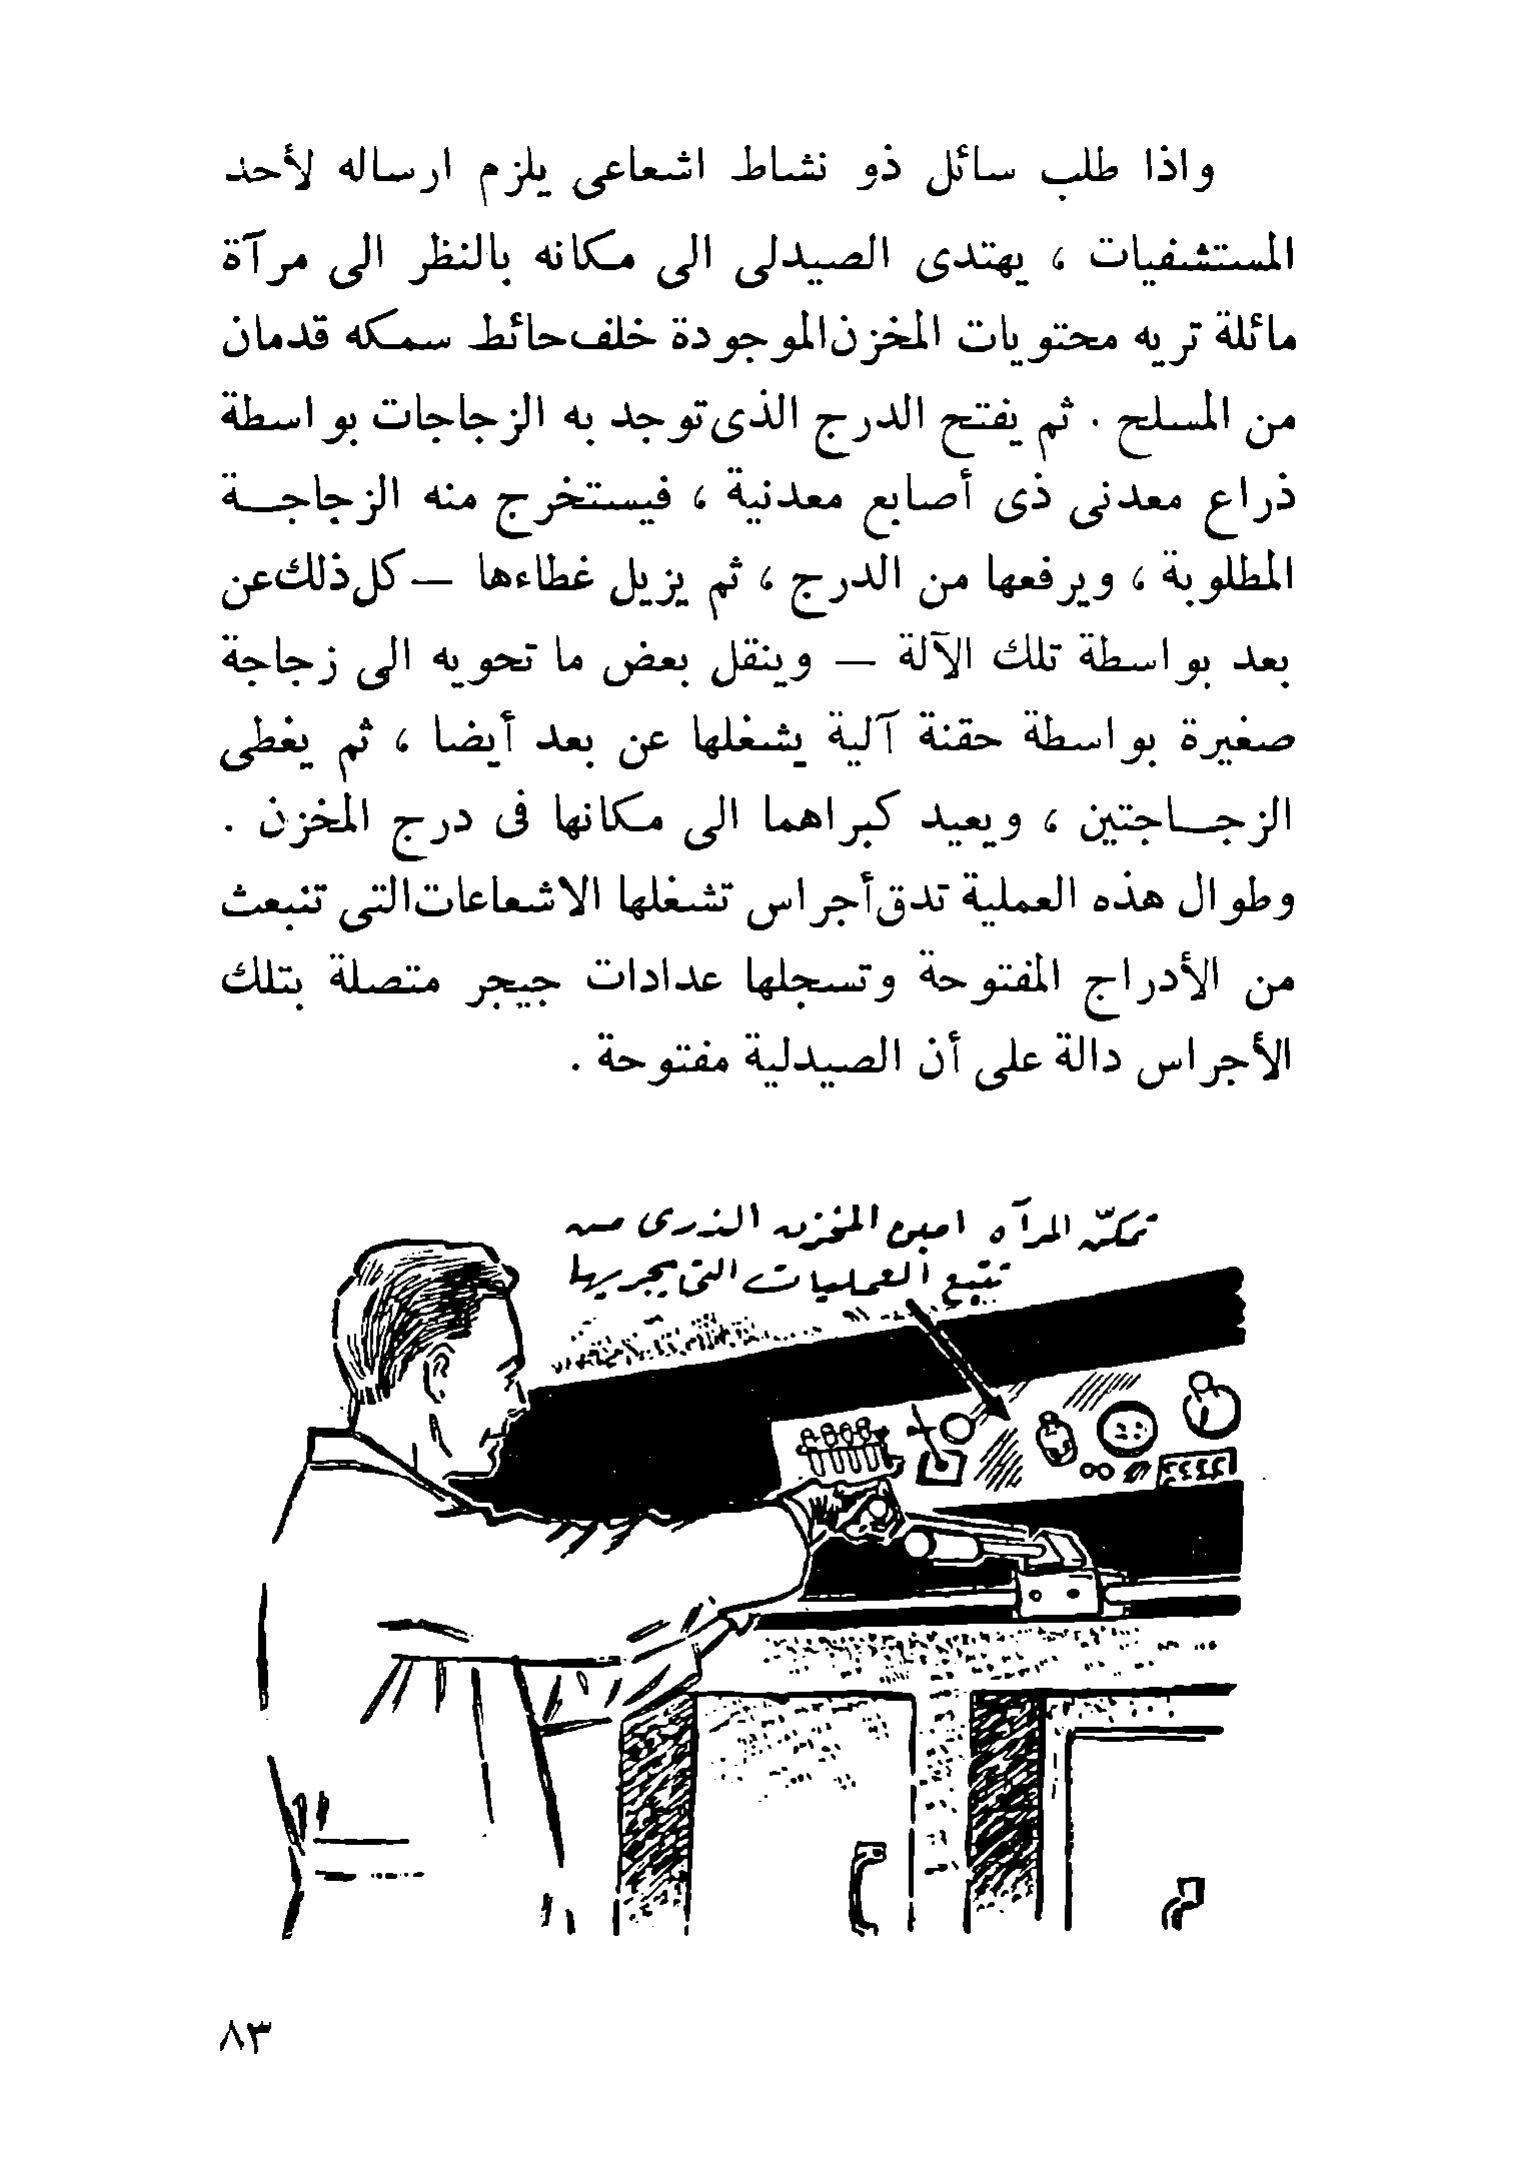 واذا طلب سائل ذو نشاط اشعاعى يلزم ارساله لأحد
المستشفيات ، يهتدى الصيدلى الى مكانه بالنظر الى مرآة
مائلة تريه محتويات المخزن الموجودة خلف حائط سمكه قدمان
من المسلح . ثم يفتح الدرج الذى توجد به الزجاجات بواسطة
ذراع معدنى ذى أصابع معدنية ، فيستخرج منه الزجاجــة
المطلوبة ، ويرفعها من الدرج ، ثم يزيل غطاءها — كل ذلك عن
بعد بواسطة تلك الآلة — وينقل بعض ما تحويه الى زجاجة
صغيرة بواسطة حقنة آلية يشغلها عن بعد أيضا ، ثم يغطى
الزجــاجتين ، ويعيد كبراهما الى مكانها فى درج المخزن .
وطوال هذه العملية تدق أجراس تشغلها الاشعاعات التى تنبعث
من الأدراج المفتوحة وتسجلها عدادات جيجر متصلة بتلك
الأجراس دالة على أن الصيدلية مفتوحة .
تمكّن المرآه امين المخزن الذرى من
تتبع العمليات التى يجريها
٨٣